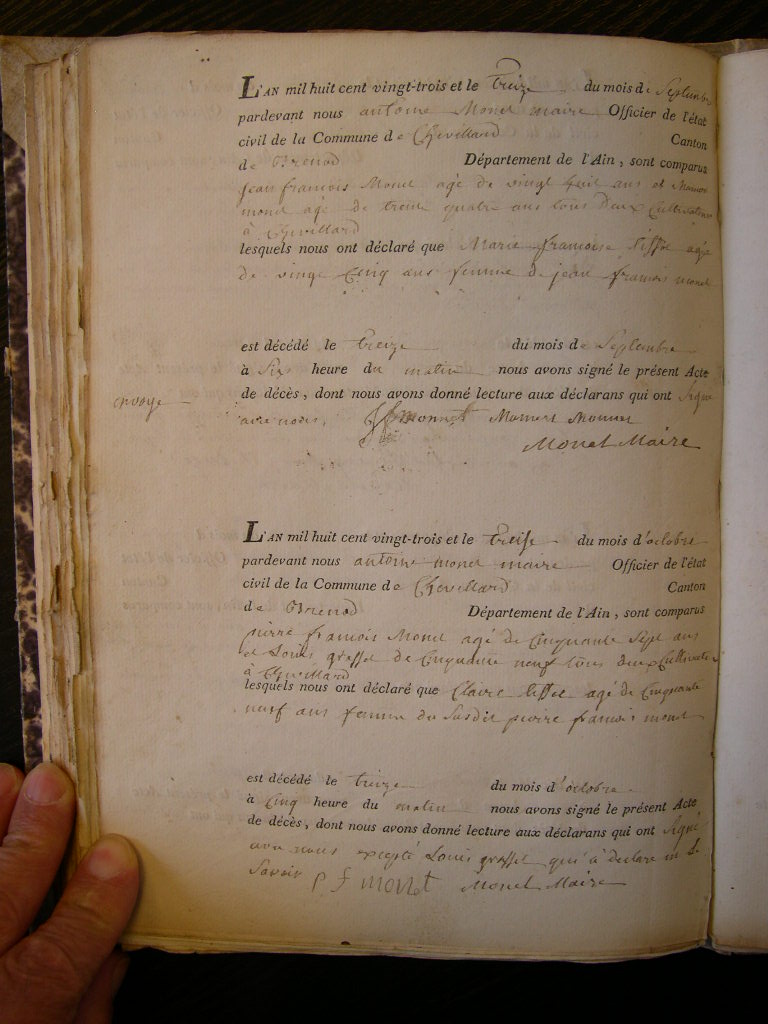 L'AN mil huit cent vingt-trois et le treize du mois de Septembre
pardevant nous antoine Monet maire Officier de l'état
civil de la Commune de Chevillard Canton
de Brenod Département de l'Ain, sont comparus
jean francois Monet agé de vingt huit ans et
monet agé de trente quatre ans tous deux Cultivateurs
à Chevillard
lesquels nous ont déclaré que Marie francoise agé
de vingt Cinq ans femme de jean francois monet
est décédé le treize du mois de Septembre
à Six heure du matin nous avons signé le présent Acte
envoye
de décès, dont nous avons donné lecture aux déclarans qui ont Signé
avec nous. monnet
Monet Maire
L'AN mil huit cent vingt-trois et le treise du mois d'octobre
pardevant nous antoine monet maire Officier de l'état
civil de la Commune de Chevillard Canton
de Brenod Département de l'Ain, sont comparus
pierre francois Monet agé de Cinquante Sept ans
et Louis grosset de Cinquante neuf tous deux Cultivateurs
à Chevillard
lesquels nous ont déclaré que Claire agé de Cinquante
neuf ans femme du Susdit pierre francois monet
est décédé le treize du mois d'octobre
à Cinq heure du matin nous avons signé le présent Acte
de décès, dont nous avons donné lecture aux déclarans qui ont Signé
avec nous excepté Louis grosset qui à declaré
Savoir p f monet Monet Maire